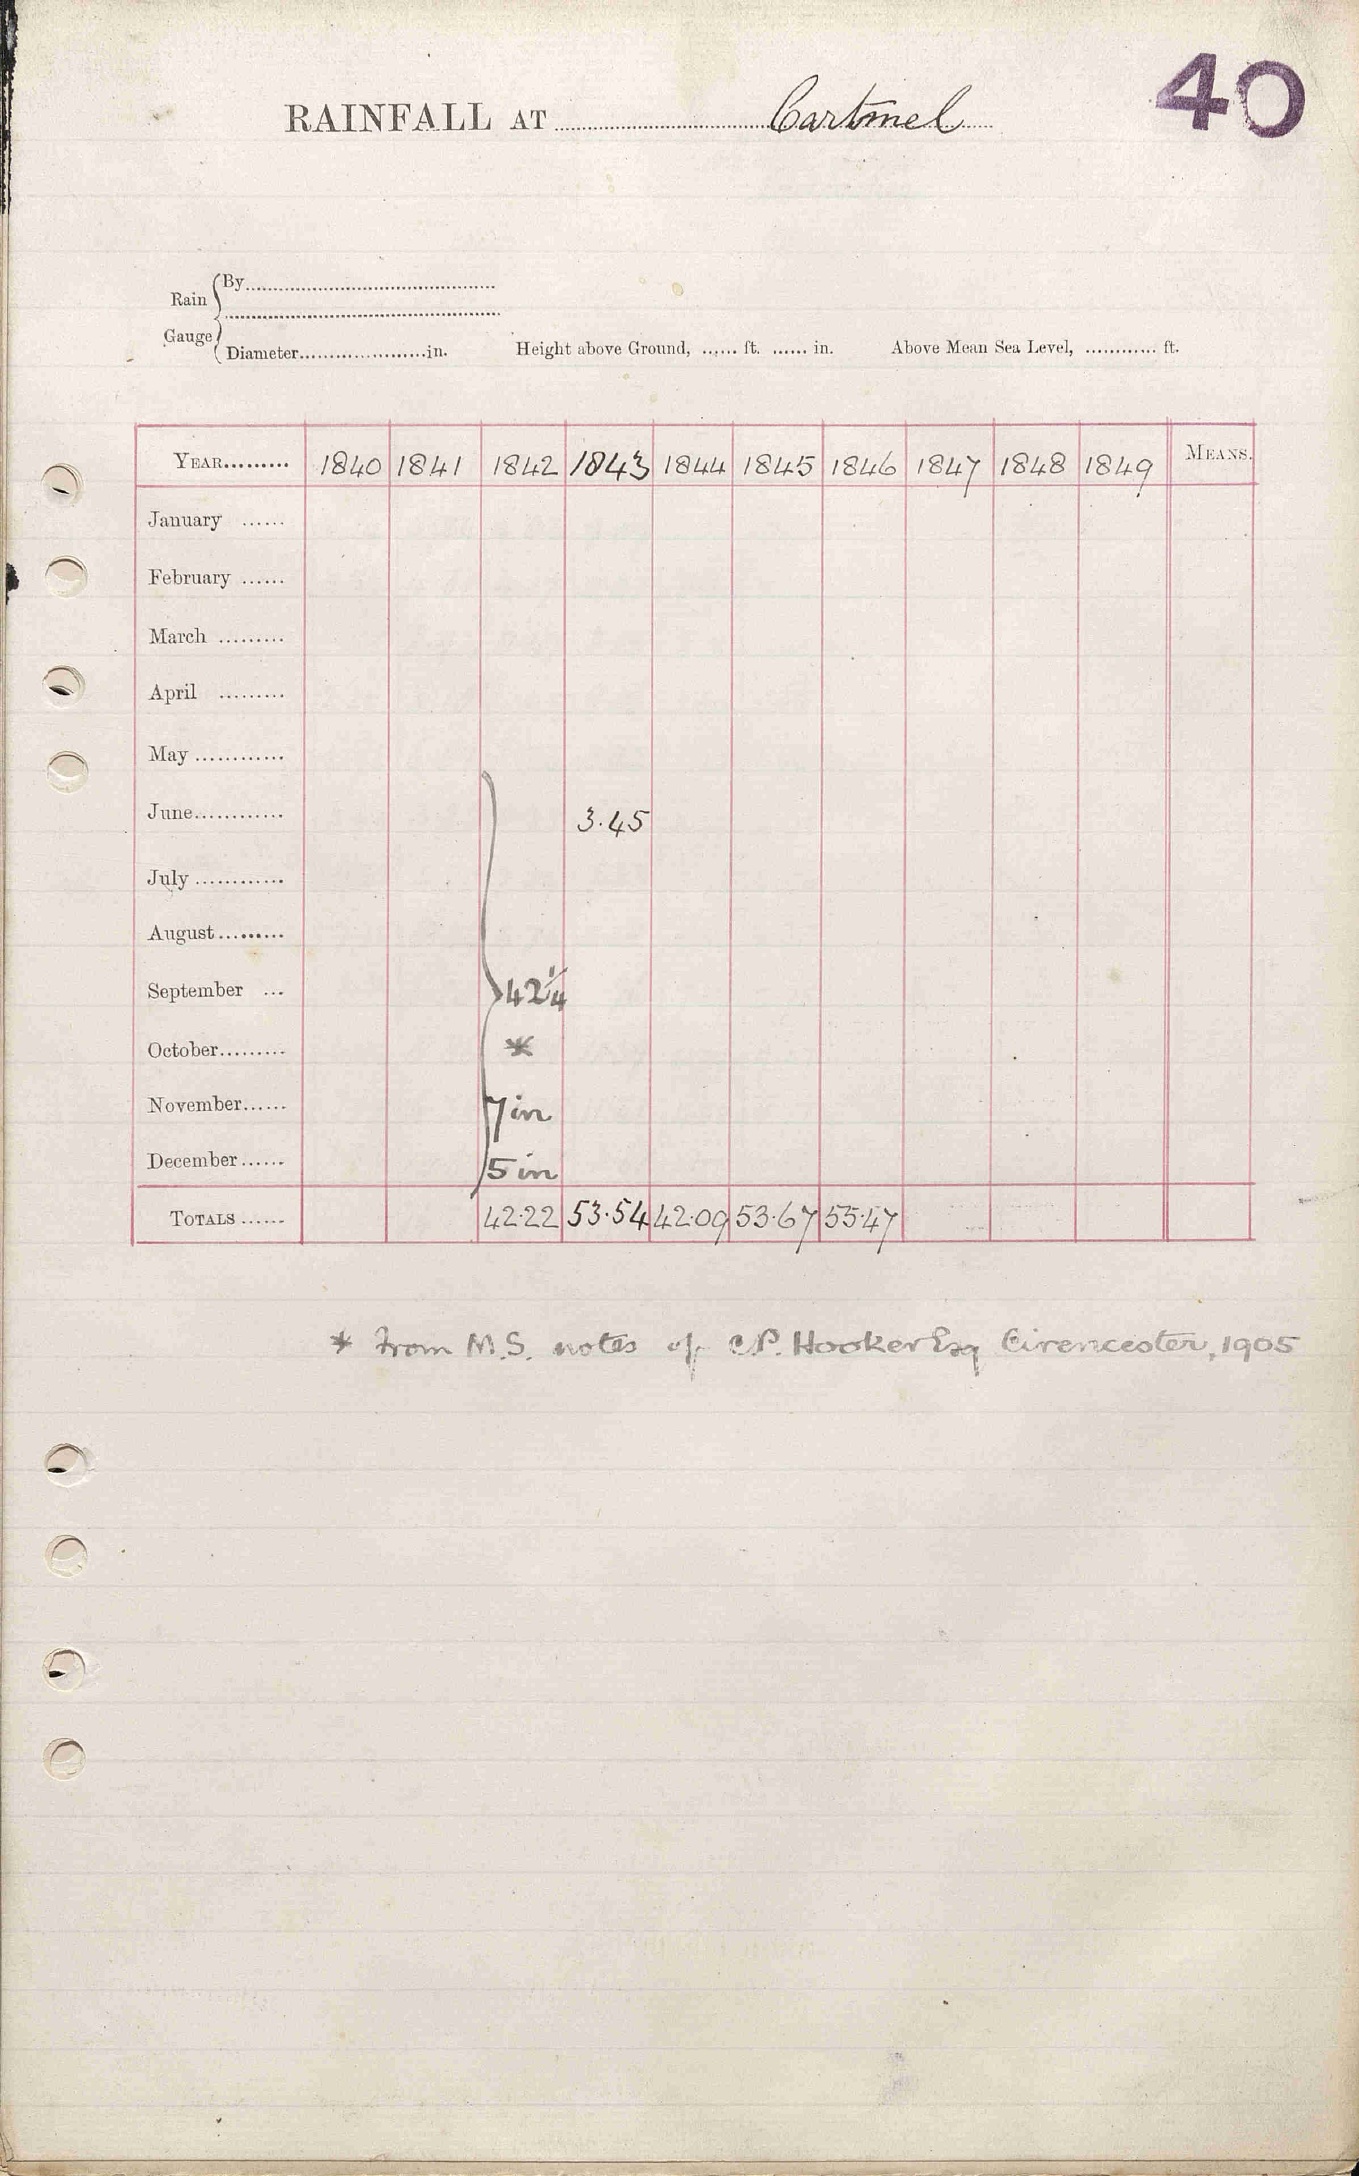 40
RAINFALL AT Cartmel
Rain Gauge
By
Diameter in. Height above Ground, ft. in. Above Mean Sea Level, ft.
YEAR 1840 1841 1842 1843 1844 1845 1846 1847 1848 1849 MEANS.
January
February
March
April
May
June 3.45
July
August
September 42 1/4
October *
November 7 in
December 5 in
TOTALS 42.22 53.54 42.09 53.67 55.47
* From M.S. notes of C.P. Hooker Esq Cirencester, 1905